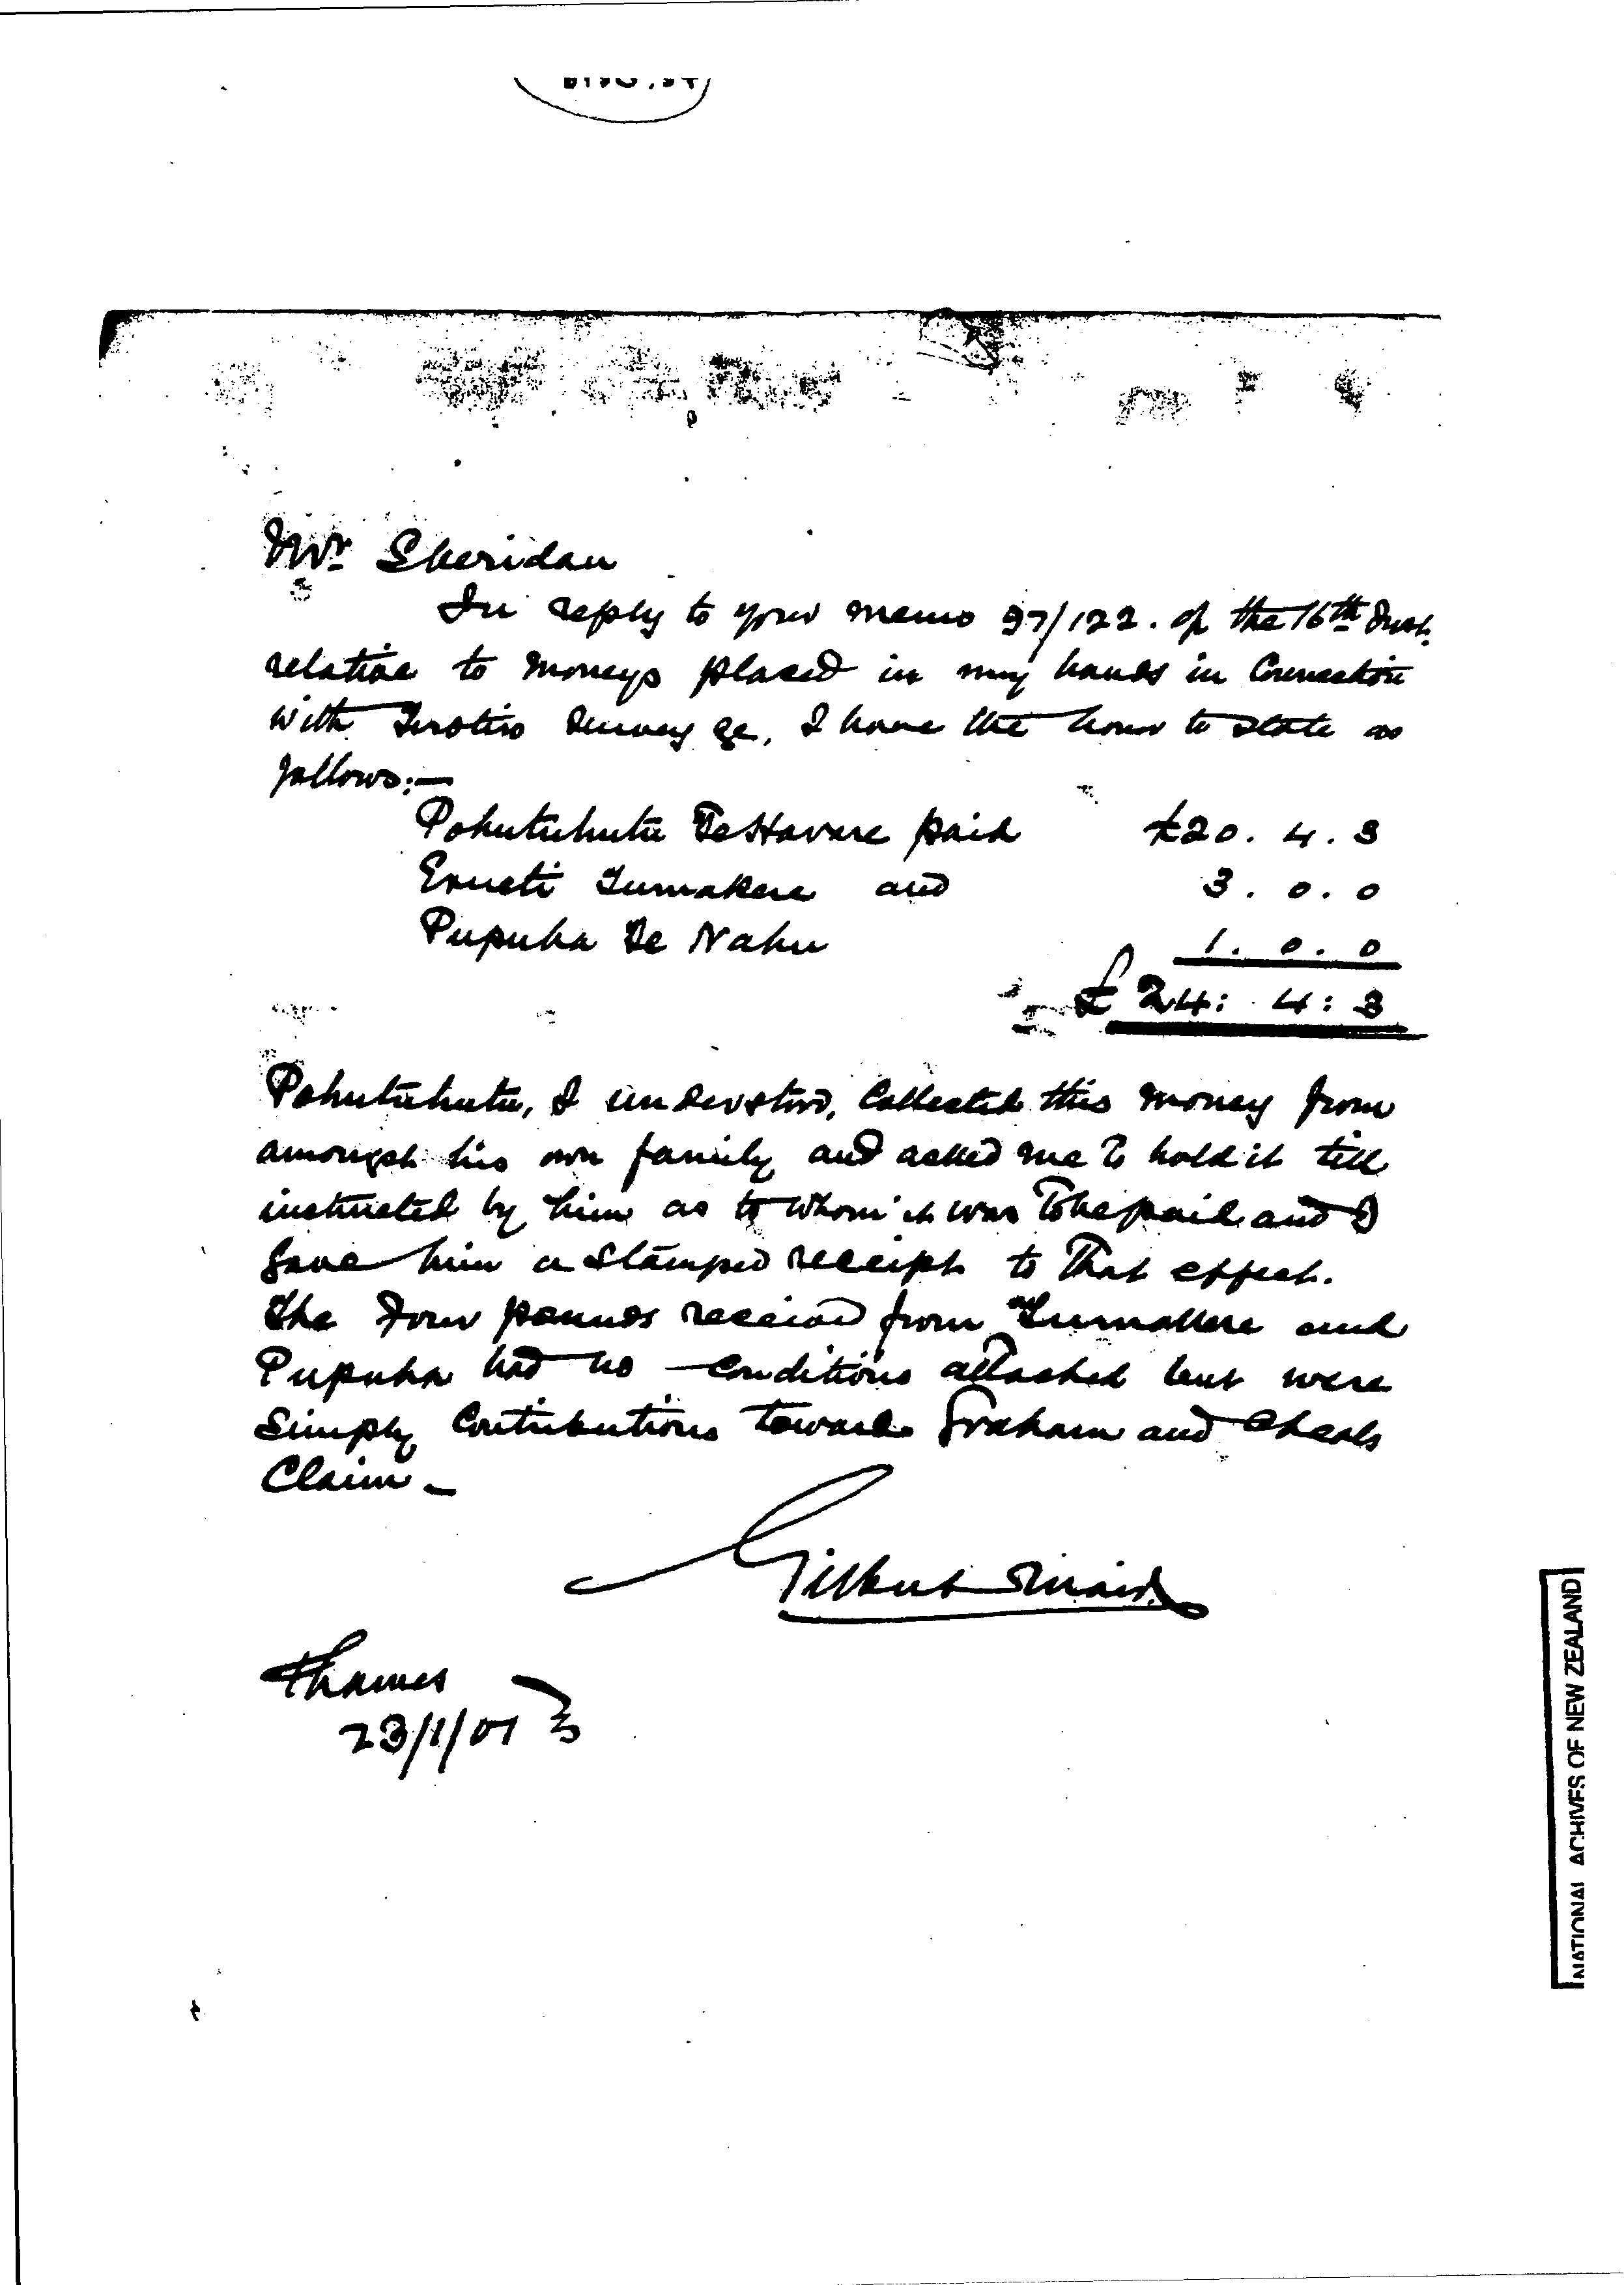 Mr. Sheridan
In reply to your memo 97/122. of the 16th Inst.
relative to moneys placed in my hands in Connection
with survey &c, I have the honor to state as
follows:—
Pohutuhutu Te Haware paid £20. 4. 3
Erueti Tumakere and 3. 0. 0
Pupuha Te Nahu 1. 0. 0
£24: 4: 3
Pohutuhutu, I understood, Collected this money from
amongst his own family and asked me to hold it till
instructed by him as to whom it was to be paid and I
gave him a stamped receipt to that effect.
The Four pounds received from Tumakere and
Pupuha had no conditions attached but were
Simply Contributions towards Graham and Cheals
Claim -
Gilbert Mair
Thames
23/1/01
NATIONAL ARCHIVES OF NEW ZEALAND